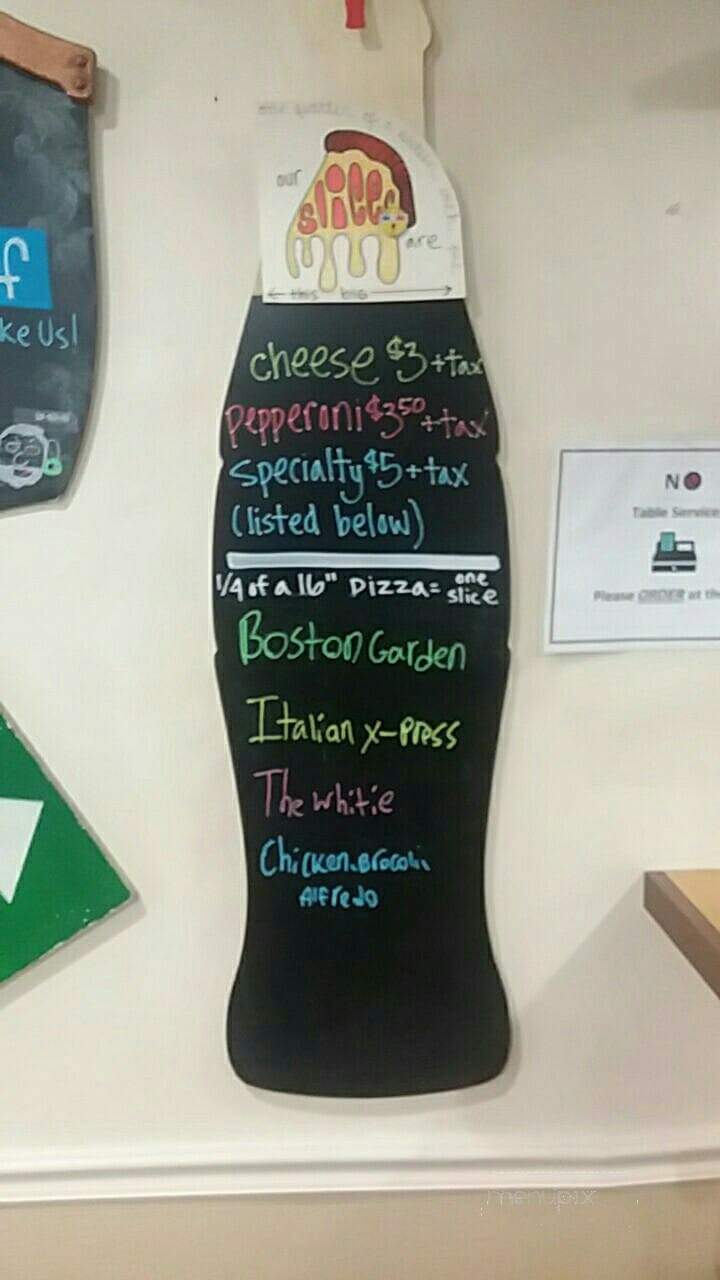 our
slices
are
this big
cheese $3 + tax
pepperoni $3.50 + tax
specialty $5 + tax
(listed below)
1/4 of a 16" Pizza = one slice
Boston Garden
Italian x-press
The whitie
Chicken.Brocoli
Alfredo
f
ke Us!
NO
Table Service
Please ORDER at the
menupix